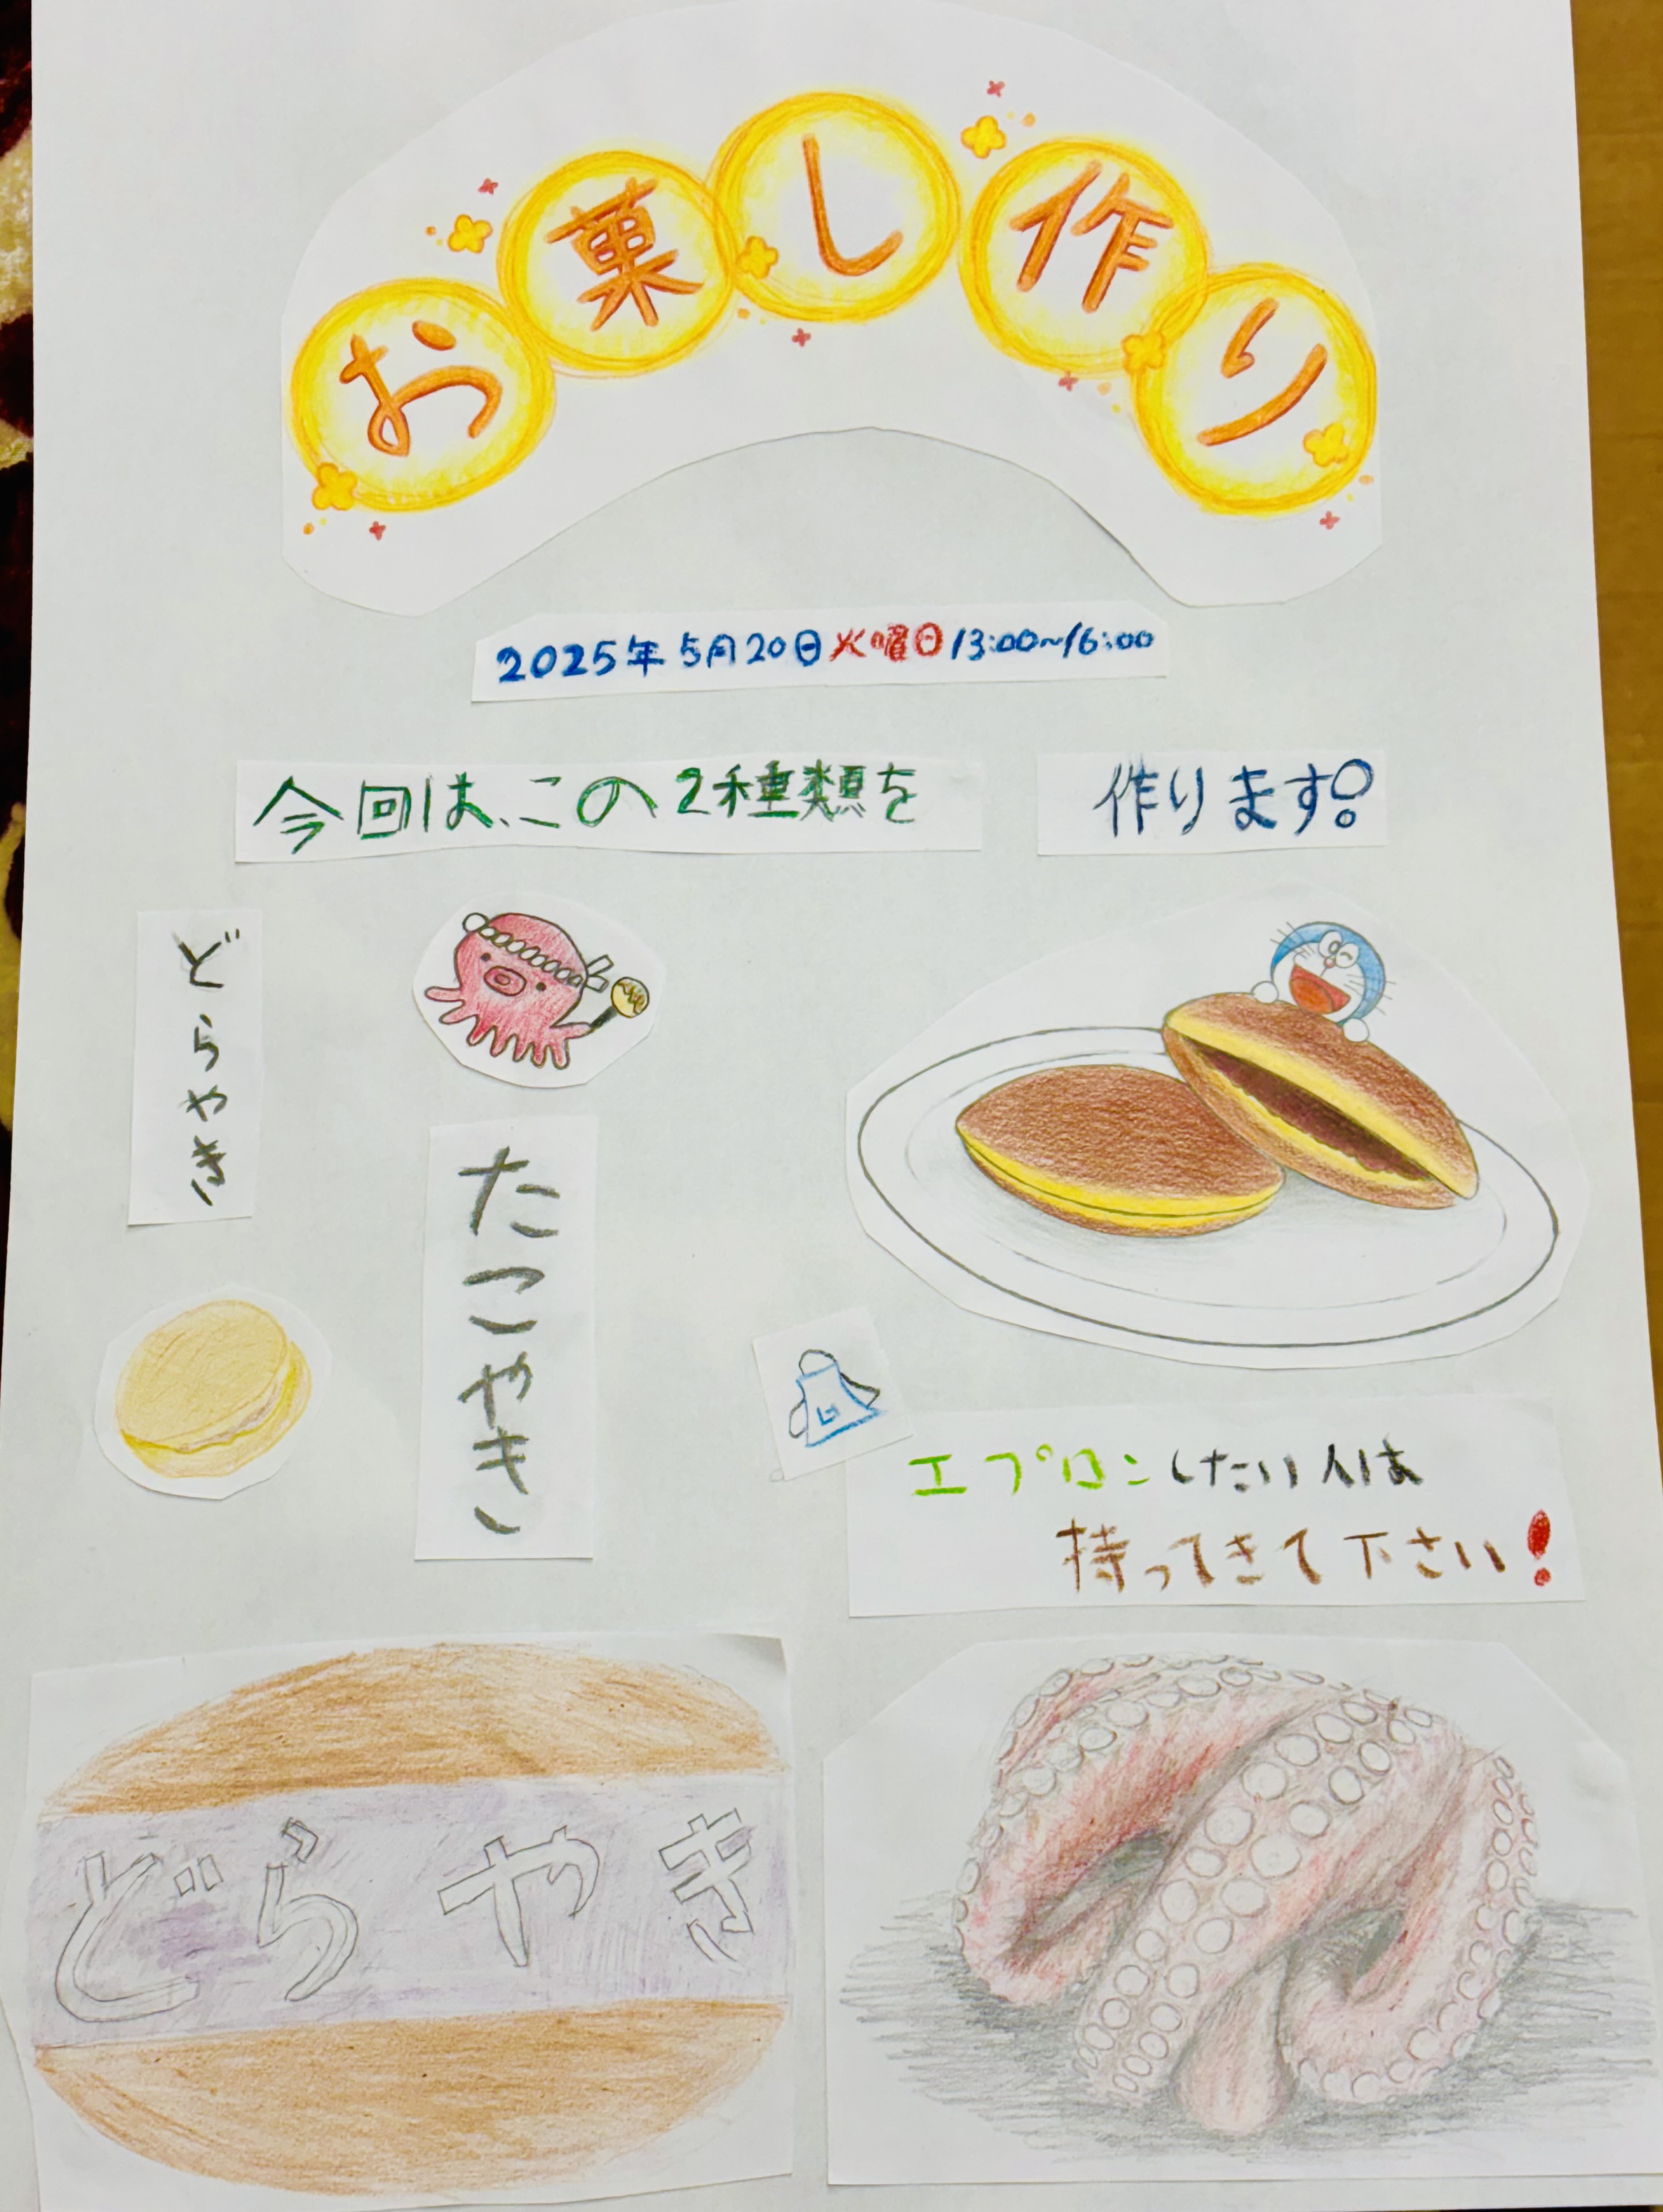 お菓し作り
2025年5月20日火曜日13:00~16:00
今回は、この2種類を
作ります!
どらやき
たこやき
エプロンしたい人は
持ってきて下さい!
どらやき